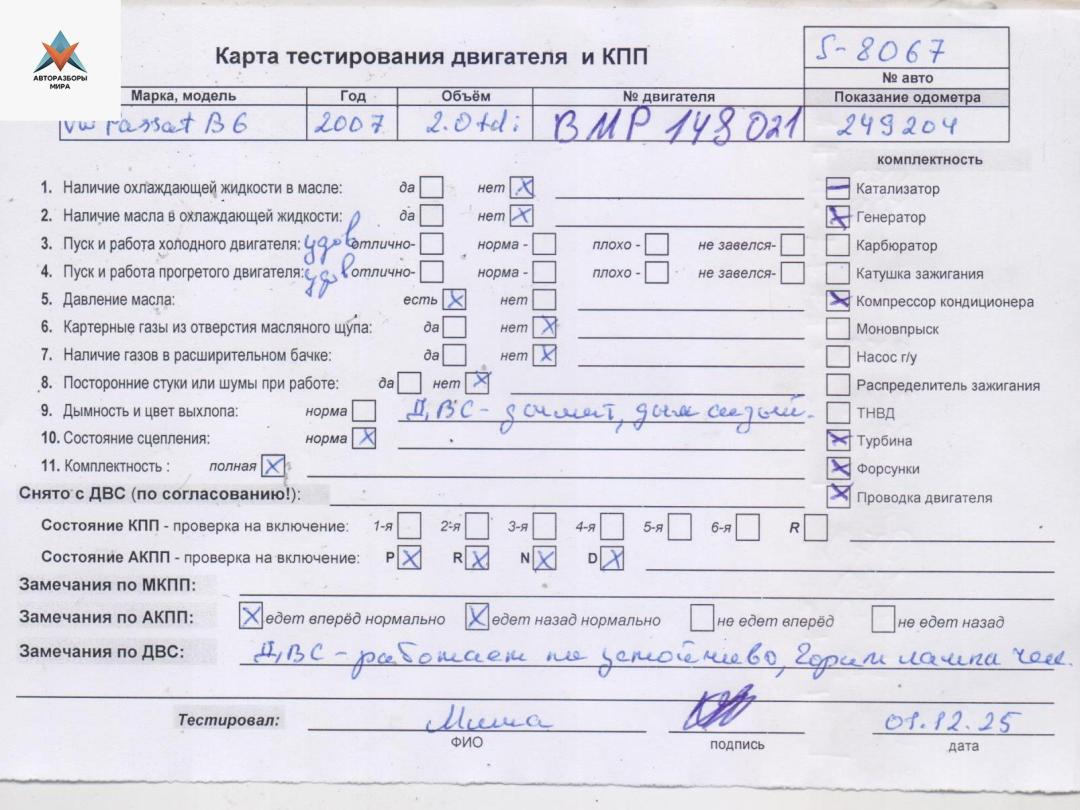 АВТОРАЗБОРЫ
МИРА
Карта тестирования двигателя и КПП
S-8067
№ авто
Марка, модель Год Объём № двигателя Показание одометра
VW Passat B6 2007 2.0 tdi BMP 149021 249204
комплектность
1. Наличие охлаждающей жидкости в масле: да нет X
Катализатор
2. Наличие масла в охлаждающей жидкости: да нет X
Генератор X
3. Пуск и работа холодного двигателя: удов отлично- норма - плохо - не завелся-
Карбюратор
4. Пуск и работа прогретого двигателя: удов отлично- норма - плохо - не завелся-
Катушка зажигания
5. Давление масла: есть X нет
Компрессор кондиционера X
6. Картерные газы из отверстия масляного щупа: да нет X
Моновпрыск
7. Наличие газов в расширительном бачке: да нет X
Насос г/у
8. Посторонние стуки или шумы при работе: да нет X
Распределитель зажигания
9. Дымность и цвет выхлопа: норма ДВС - дымит, дым сизый.
ТНВД
10. Состояние сцепления: норма X
Турбина X
11. Комплектность : полная X
Форсунки X
Снято с ДВС (по согласованию!):
Проводка двигателя X
Состояние КПП - проверка на включение: 1-я 2-я 3-я 4-я 5-я 6-я R
Состояние АКПП - проверка на включение: P X R X N X D X
Замечания по МКПП:
Замечания по АКПП: X едет вперёд нормально X едет назад нормально не едет вперёд не едет назад
Замечания по ДВС: ДВС - работает не устойчево, Горит лампа чек.
Тестировал: Миша 01.12.25
ФИО подпись дата